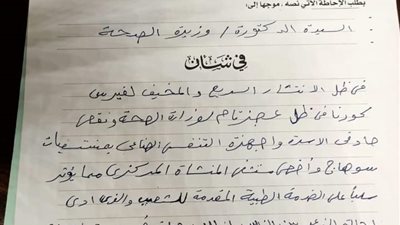 بطلب الإحاطة الآتي نصه، موجها إلى:
السيدة الدكتورة / وزيرة الصحة
في شأن
فى ظل الانتشار السريع والمخيف لفيرس
كورونا فى ظل عجز تام لوزارة الصحة ونقص
حاد فى الاسرة واجهزة التنفس الصناعى بمستشفيات
سوهاج وأخص مستشفى المنشاة المركزى مما يؤثر
سلباً على الخدمة الطبية المقدمة للشعب والذى ادى